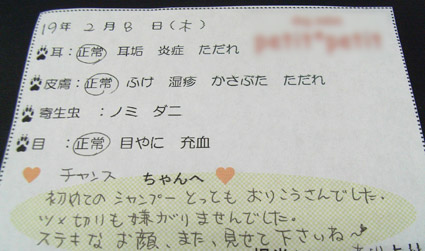 19年 2月 8日(木)
耳：正常 耳垢 炎症 ただれ
皮膚：正常 ふけ 湿疹 かさぶた ただれ
寄生虫 ：ノミ ダニ
目 ：正常 目やに 充血
チャンス ちゃんへ
初めてのシャンプーとってもおりこうさんでした.
ツメ切りも嫌がりませんでした.
ステキなお顔、また、見せて下さいね〜